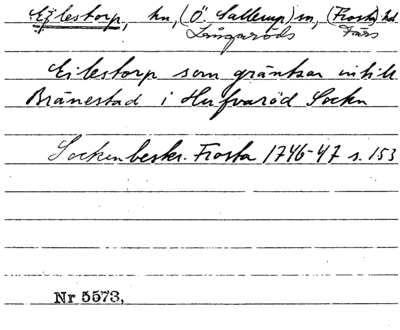 Ejlestorp, hn, (Ö. Sallerup) sn, (Frosta) hd
Långaröds Färs
Eilestorp som gräntsar intill
Brånestad i Hufvaröd Sockn
Sockenbeskr. Frosta 1746-47 s. 153
Nr 5573,